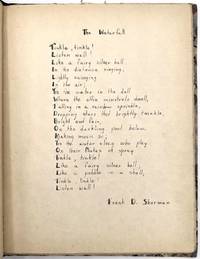 The Waterfall
Tinkle, tinkle!
Listen well!
Like a fairy silver bell
In the distance ringing,
Lightly swinging
In the air;
'Tis the water in the dell
Where the elfin minstrels dwell,
Falling in a rainbow sprinkle,
Dropping stars that brightly twinkle,
Bright and fair,
On the darkling pool below,
Making music so;
'Tis the water elves who play
On their flutes of spray
Tinkle, tinkle!
Like a fairy silver bell;
Like a pebble in a shell,
Tinkle, tinkle!
Listen well!
Frank D. Sherman